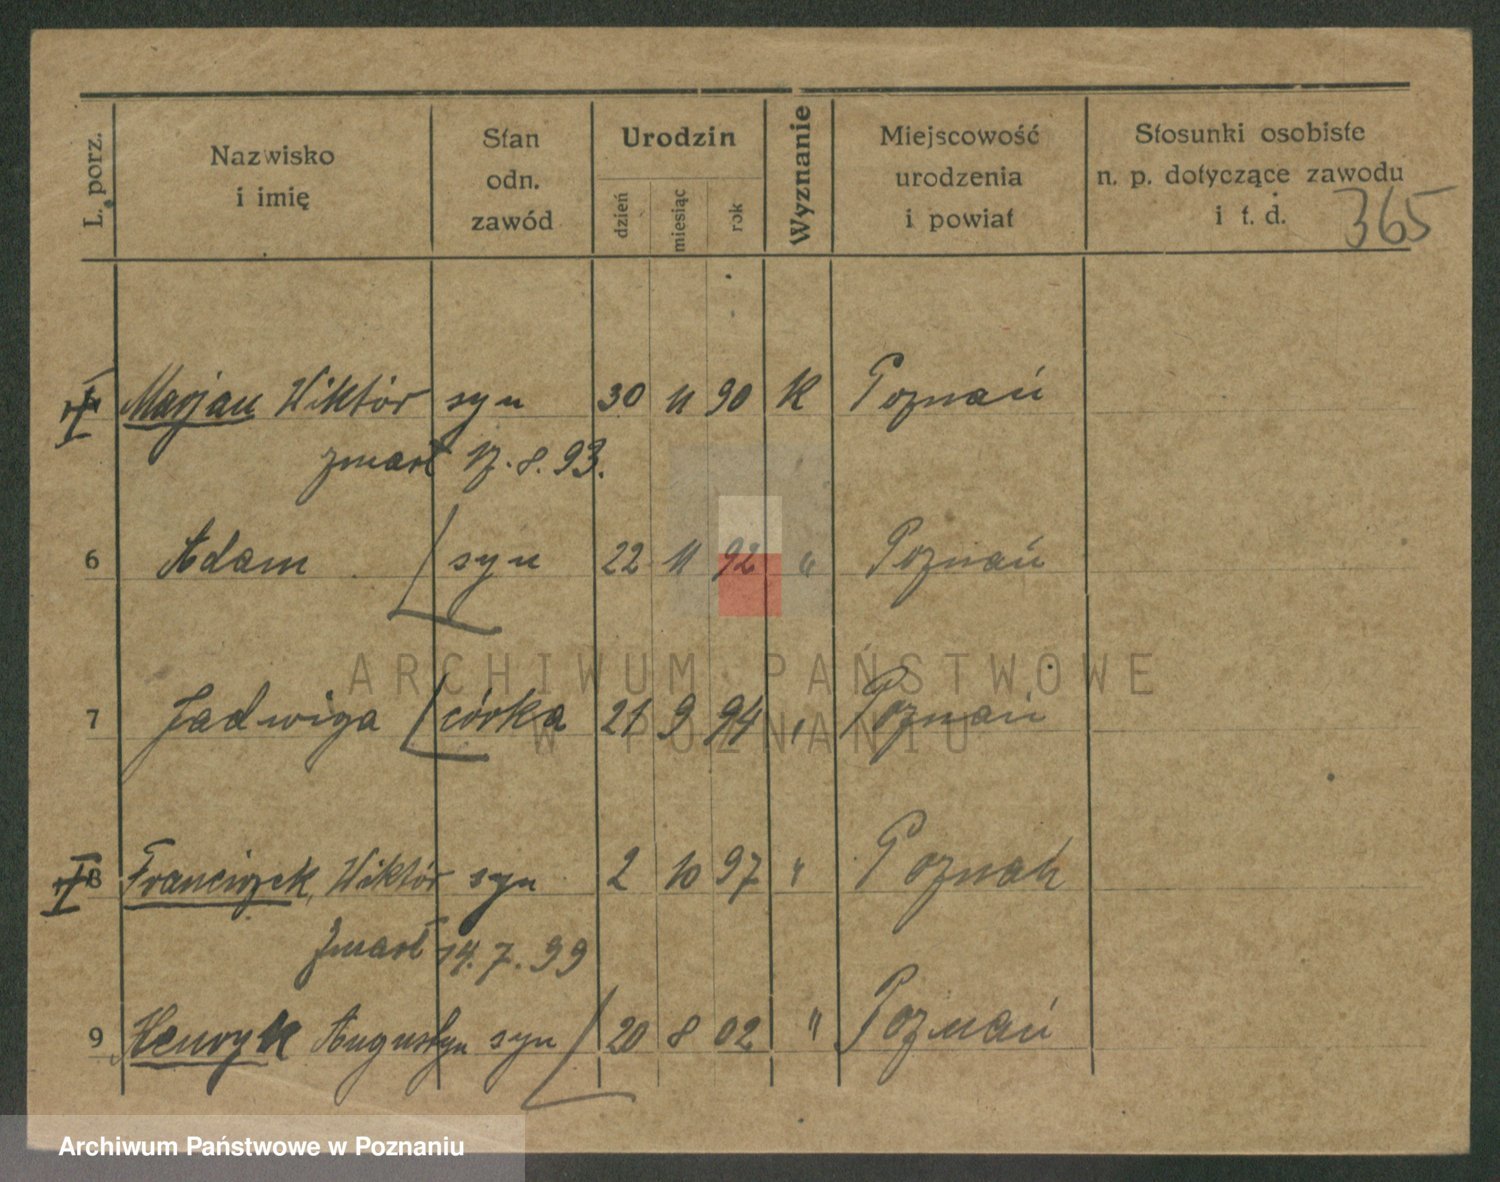 L. porz.
Nazwisko
i imię
Stan
odn.
zawód
Urodzin
dzień
miesiąc
rok
Wyznanie
Miejscowość
urodzenia
i powiat
Stosunki osobiste
n. p. dotyczące zawodu
i t. d.
365
Marjan Wiktór syn 30 11 90 K Poznań
zmarł 17. 8. 93.
6 Adam syn 22 11 92 " Poznań
ARCHIWUM PAŃSTWOWE
W POZNANIU
7 Jadwiga córka 21 9 94 " Poznań
8 Franciszek, Wiktór syn 2 10 97 " Poznań
Zmarł 14. 7. 99
9 Henryk Augustyn syn 20 8 02 " Poznań
Archiwum Państwowe w Poznaniu